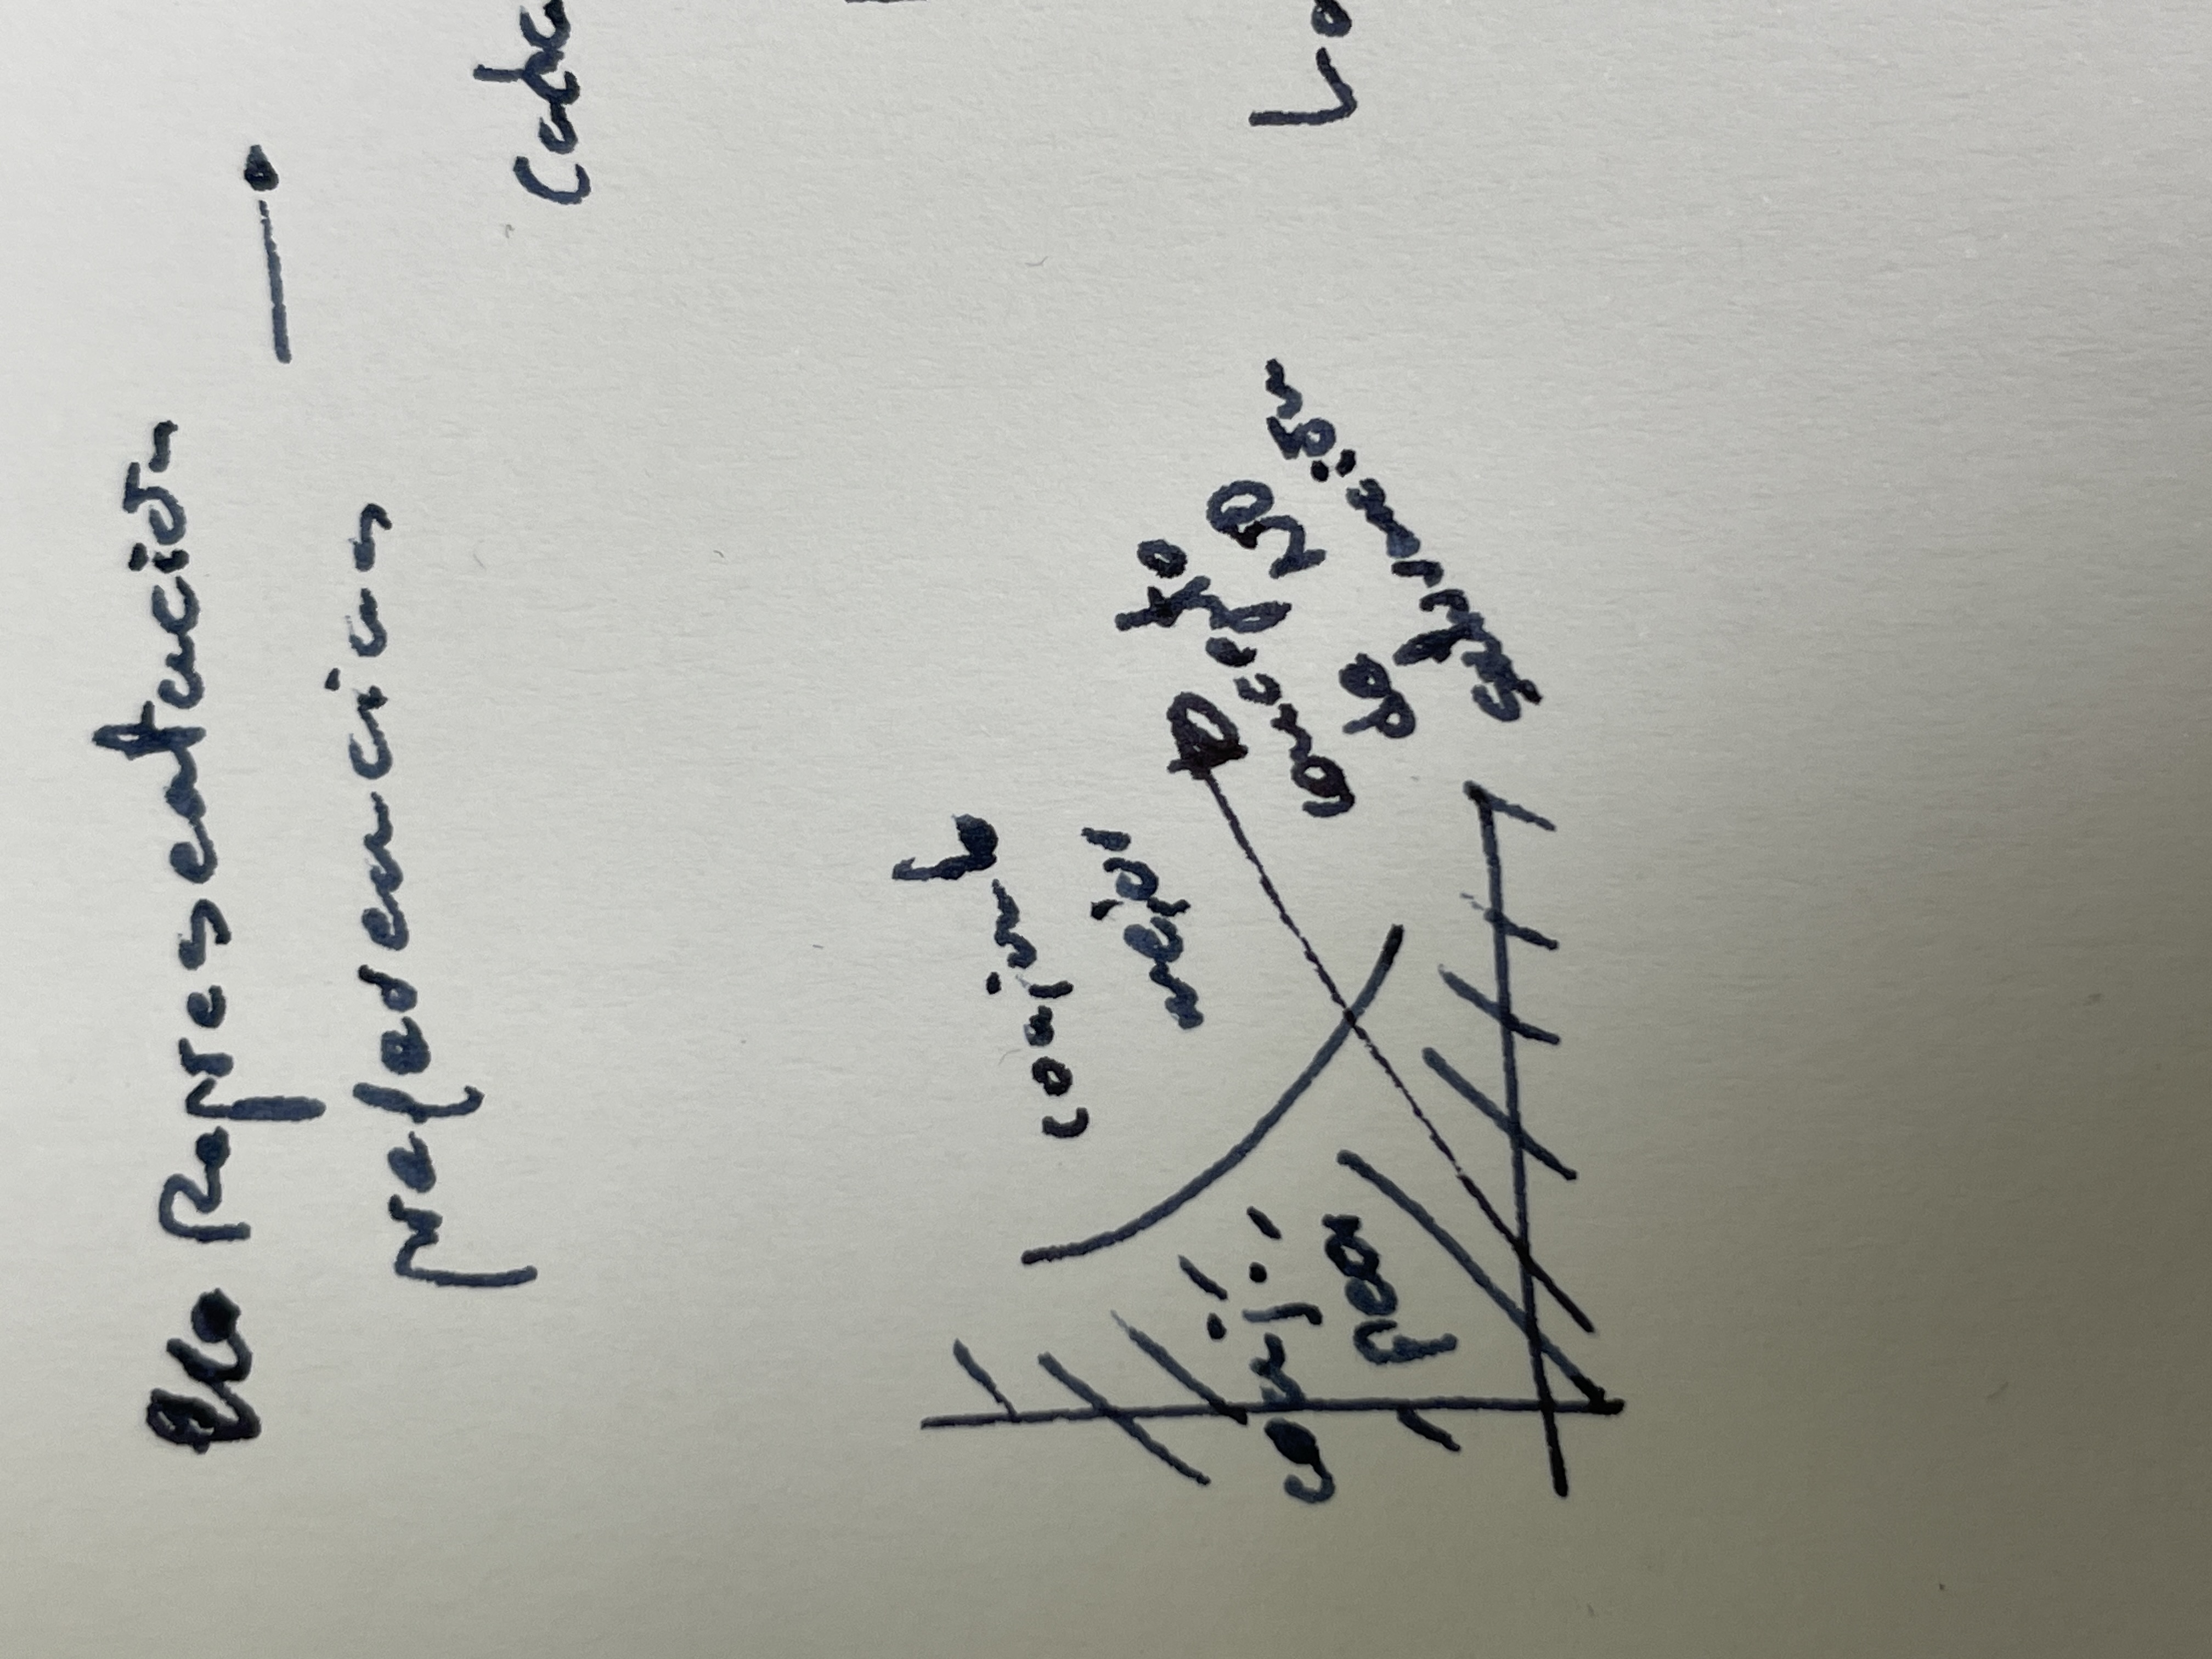 Representación
preferencias
cada
conjunto
mejor
conj.
peor
concepto
de NO
saturación
Lo